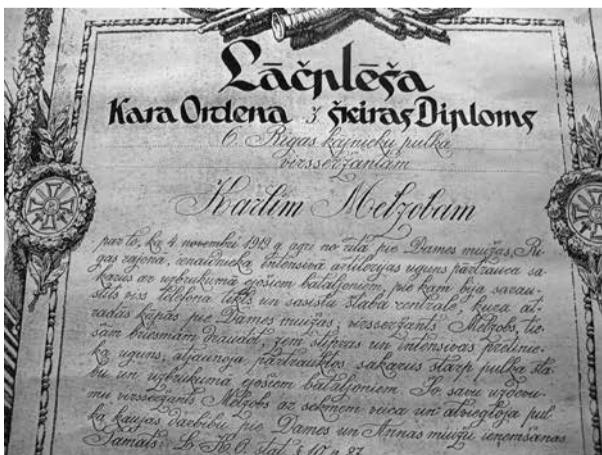 Lāčplēša
Kara Ordena 3 šķiras Diploms
6. Rīgas kājnieku pulka
virsseržantam
Karlim Melzobam
par to, ka 4. novembrī 1919 g. agri no rīta pie Dames muižas, Rī-
gas rajonā, ienaidnieka intensīvā artilerijas uguns pārtrauca sa-
karus ar uzbrukumā ejošiem bataljoniem, pie kam bija sarau-
stīts viss telefona tīkls un sasista štaba centrāle, kura at-
radās kāpās pie Dames muižas; virsseržants Melzobs, tie-
šām briesmām draudot, zem stipras un intensīvas pretinie-
ka uguns, atjaunoja pārtrauktos sakarus starp pulka šta-
bu un uzbrukumā ejošiem bataljoniem. Šo savu uzdevu-
mu virsseržants Melzobs ar sekmēm veica un atviegloja pul-
ka kaujas darbību pie Dames un Annas muižu ieņemšanas.
Pamats: L. K. O. stat. §